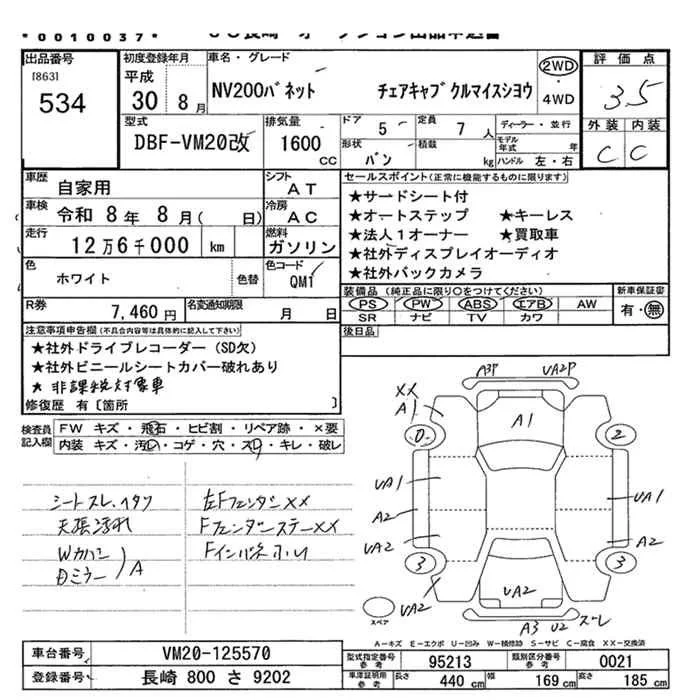 * 0 0 1 0 0 3 7 *
出品番号
[863]
534
初度登録年月
平成
30 年 8 月
車名・グレード
NV200バネット チェアキャブ クルマイスショウ
2WD
・
4WD
評価点
3.5
外装 内装
C C
型式
DBF-VM20改
排気量
1600
CC
ドア 5
形状 バン
定員 7 人
積載 kg
ディーラー・並行
モデル年式 年
ハンドル 左・右
車歴
自家用
シフト
AT
車検 令和 8 年 8 月 ( 日)
冷房
AC
走行
12万6千000 km
燃料
ガソリン
色
ホワイト
色替
色コード
QM1
R券 7,460円
名変通知期限 月 日
セールスポイント(正常に機能するものに限ります)
★サードシート付
★オートステップ ★キーレス
★法人1オーナー ★買取車
★社外ディスプレイオーディオ
★社外バックカメラ
装備品(純正品に限り○をつけてください)
PS PW ABS エアB AW
SR ナビ TV カワ
新車保証書
有・無
後日品
注意事項申告欄(不具合内容等は具体的に記入して下さい)
★社外ドライブレコーダー(SD欠)
★社外ビニールシートカバー破れあり
★ 非課税対象車
修復歴 有〔箇所 〕
検査員記入欄
FW キズ・飛石・ヒビ割・リペア跡・×要
内装 キズ・汚レ・コゲ・穴・スレ・キレ・破レ
シートスレ、イタツ
天張汚れ
Wカバー
Dミラー
) A
左Fフェンダー××
Fフェンダーステー××
Fインパネ ホル
A3P UA2P
××
A1
A1
0
2
UA1
A2
UA2
UA1
A2
3
3
UA2
UA2
A3 U2 ズレ
スペア
A-キズ E-エクボ U-凹み W-補修跡 S-サビ C-腐食 XX-交換済
車台番号 VM20-125570
登録番号 長崎 800 さ 9202
型式指定番号 参考 95213
類別区分番号 参考 0021
車津証明用 参考 長さ 440 cm 幅 169 cm 高さ 185 cm